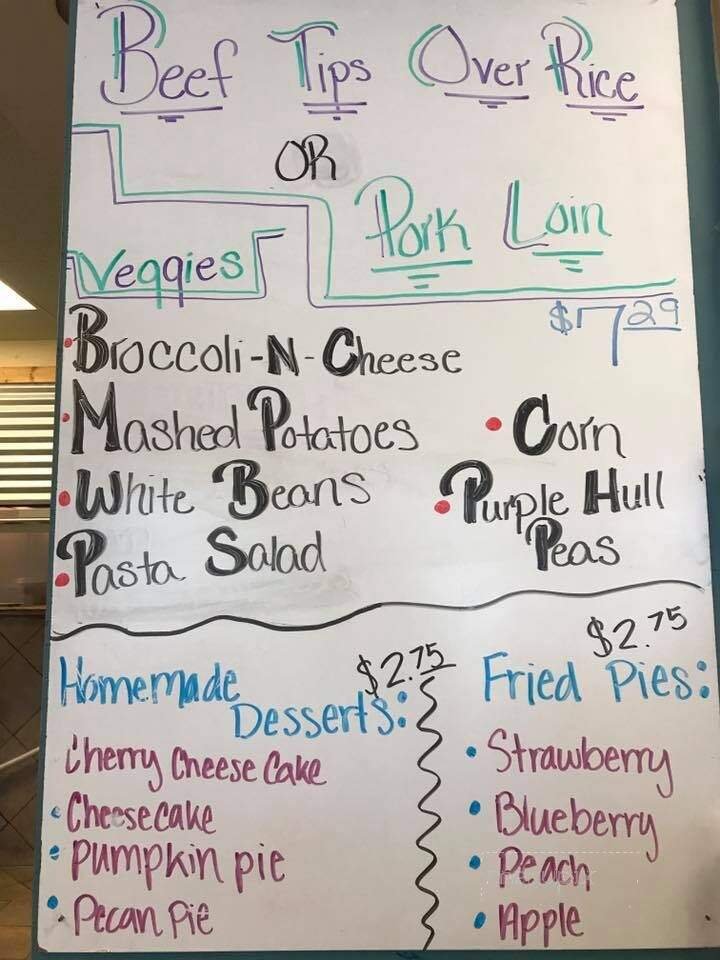 Beef Tips Over Rice
OR
Pork Loin
Veggies
$7.29
Broccoli-N-Cheese
Mashed Potatoes
Corn
White Beans
Purple Hull
Peas
Pasta Salad
$2.75
Homemade
Desserts:
Cherry Cheese Cake
Cheesecake
Pumpkin pie
Pecan Pie
$2.75
Fried Pies:
Strawberry
Blueberry
Peach
Apple